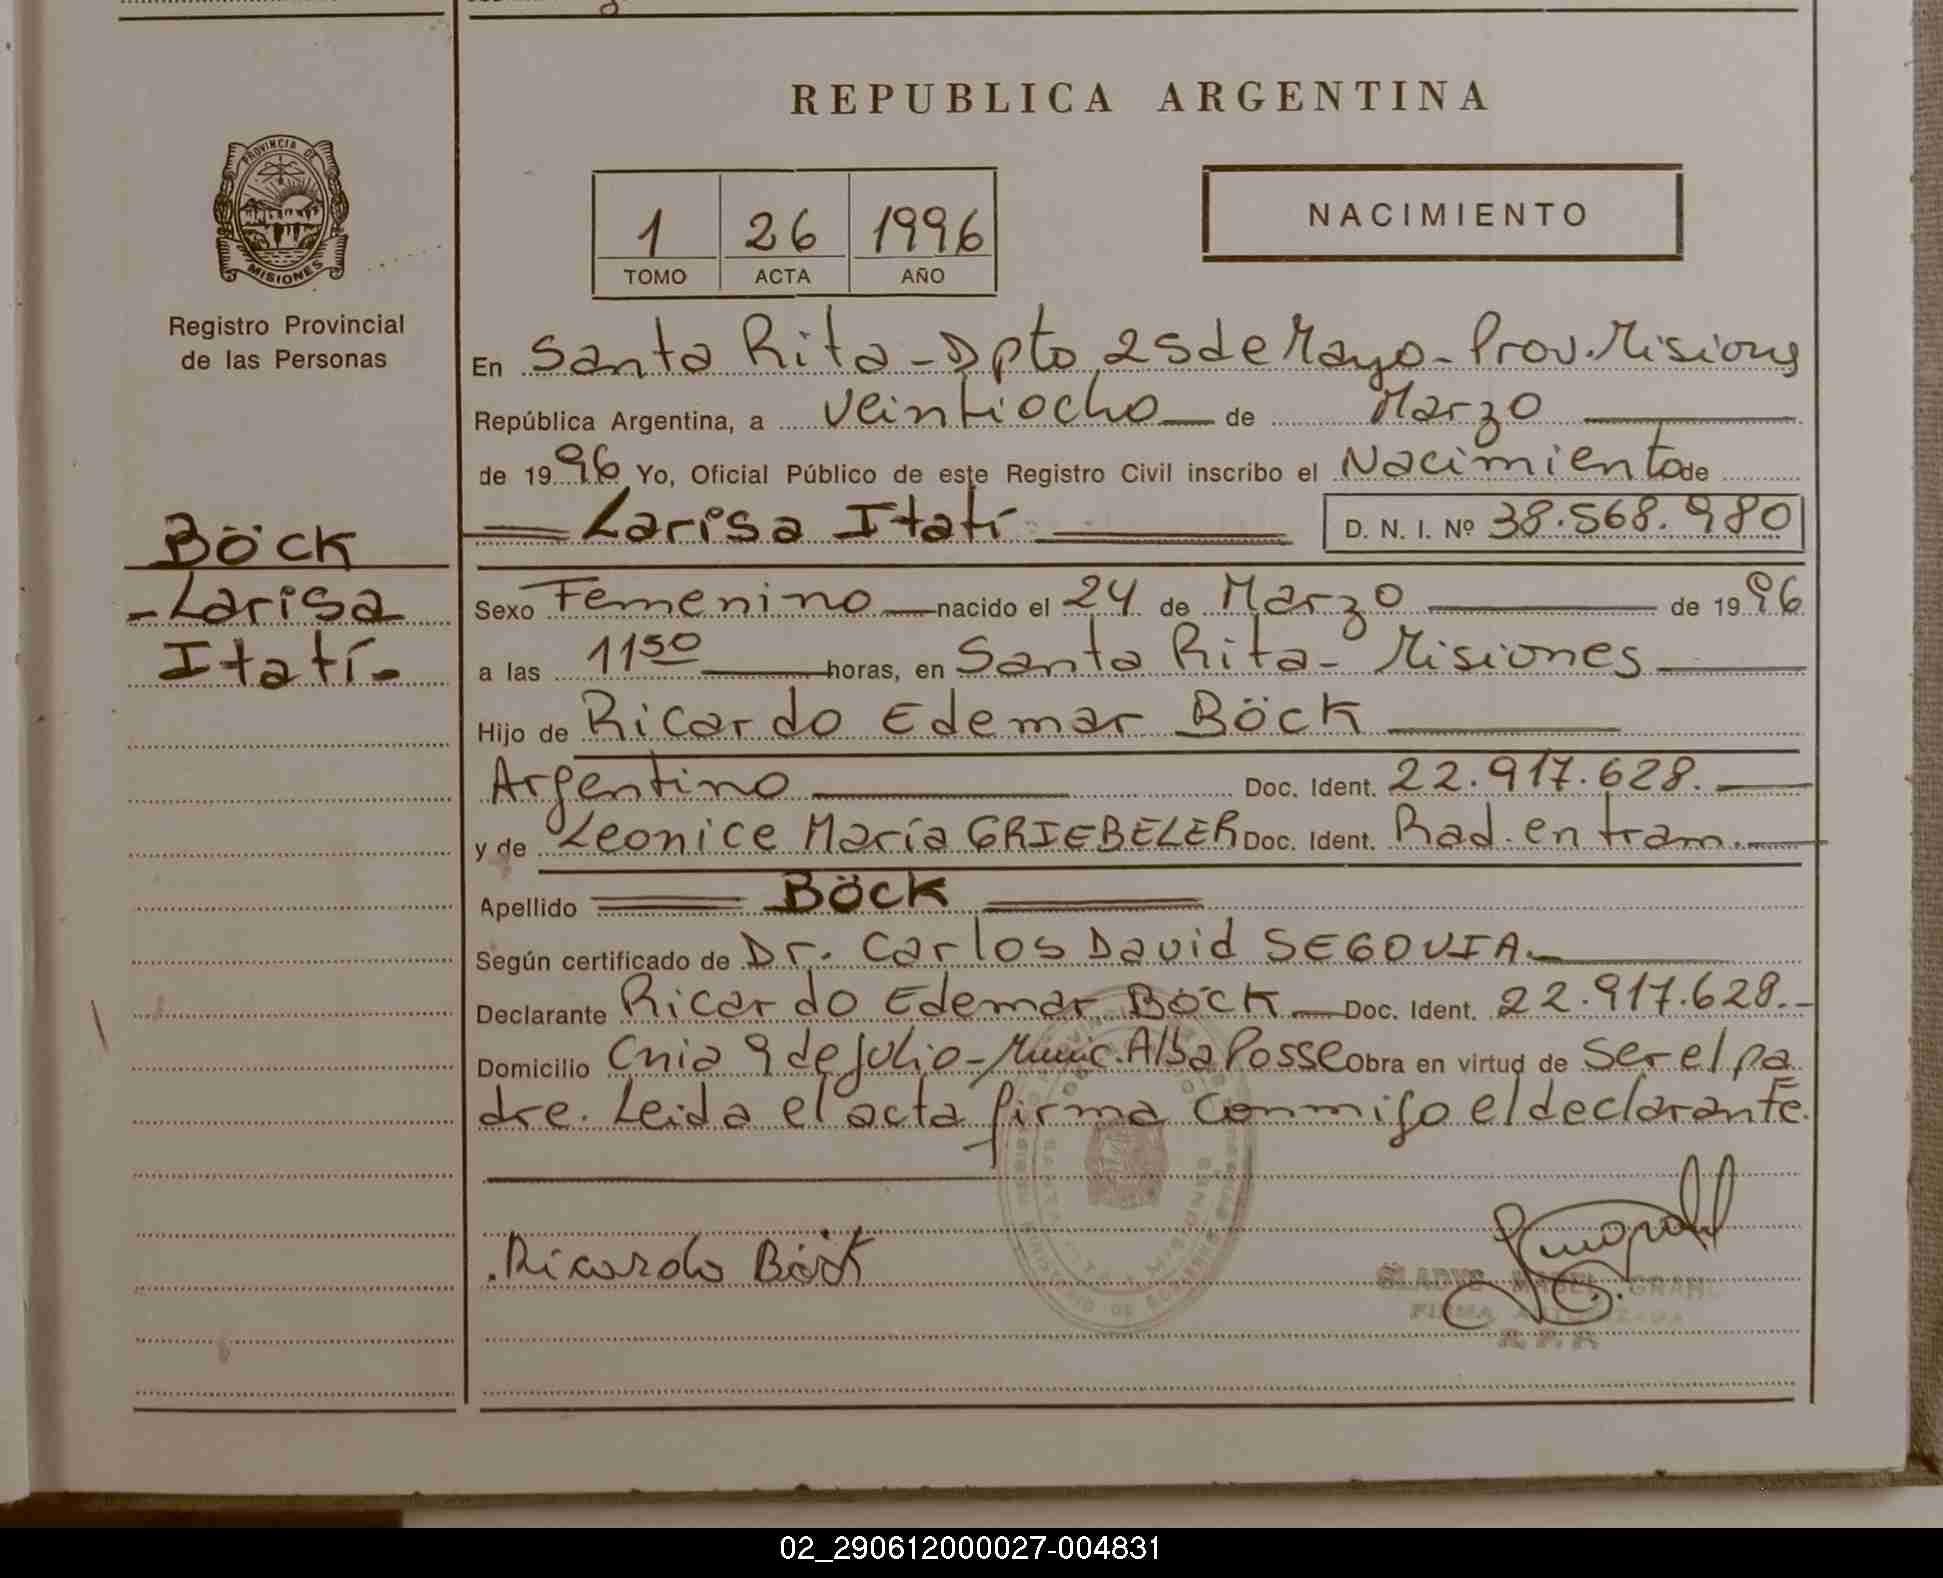 REPUBLICA ARGENTINA
PROVINCIA DE
MISIONES
Registro Provincial
de las Personas
1 26 1996
TOMO ACTA AÑO
NACIMIENTO
Böck
- Larisa
Itatí -
En Santa Rita - Dpto 25 de Mayo - Prov. Misiones
República Argentina, a veintiocho de Marzo
de 1996 Yo, Oficial Público de este Registro Civil inscribo el Nacimiento de
Larisa Itatí D. N. I. Nº 38.568.980
Sexo Femenino nacido el 24 de Marzo de 1996
a las 11 50 horas, en Santa Rita - Misiones
Hijo de Ricardo Edemar Böck
Argentino Doc. Ident. 22.917.628.
y de Leonice María GRIEBELER Doc. Ident. Rad. en tram.
Apellido Böck
Según certificado de Dr. Carlos David SEGOVIA.
Declarante Ricardo Edemar Böck Doc. Ident. 22.917.628.-
Domicilio Cnia 9 de Julio - Munic. Alba Posse Obra en virtud de Ser el pa
dre. Leida el acta firma conmigo el declarante.
Ricardo Böck
GLADYS MABEL
FIRMA
02_290612000027-004831